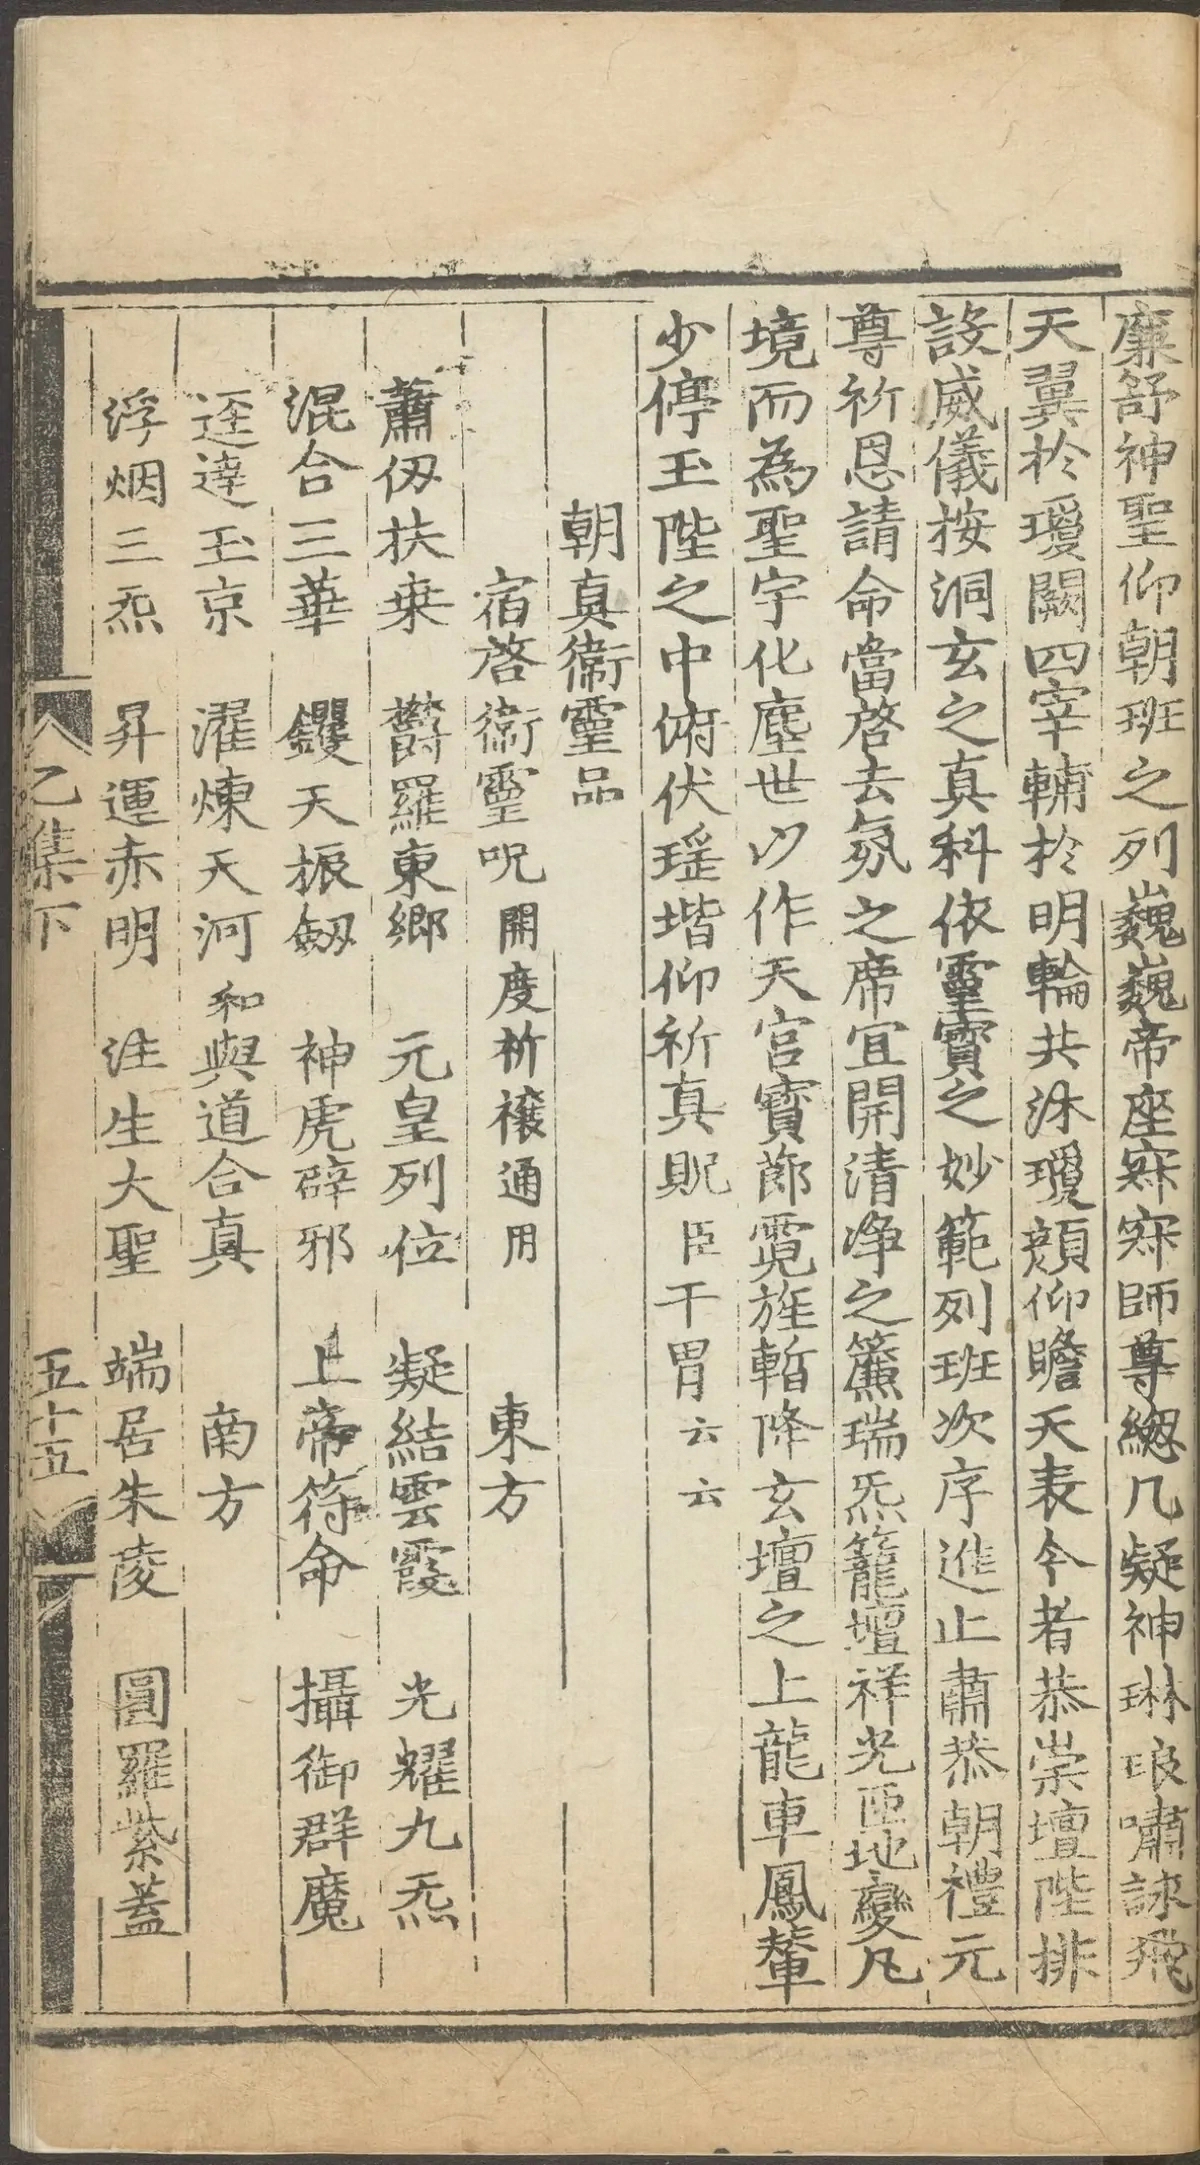 廉舒神聖仰朝班之列巍巍帝座寀寀師尊緫几凝神琳琅嘯詠飛
天翼於璦闕四宰輔於明輪共沐瓊顔仰瞻天表今者恭崇壇陛排
設威儀按洞玄之真科依靈寶之妙範列班次序進止肅恭朝禮元
尊祈恩請命當啓去氛之席宜開清净之簾瑞炁籠壇祥光匝地變凡
境而為聖宇化塵世以作天宮寶節霓旌暫降玄壇之上龍車鳳輦
少停玉陛之中俯伏瑤堦仰祈真貺臣干冒云云
朝真衛靈品
宿啓衛靈呪開度祈禳通用 東方
蕭仭扶桒 欝羅東鄉 元皇列位 凝結雲霞 光耀九炁
混合三華 钁天振劔 神虎辟邪 上帝符命 攝御群魔
迳達玉京 濯煉天河 和與道合真 南方
浮烟三炁 昇運赤明 注生大聖 端居朱陵 圓羅紫蓋
乙集下 五十五